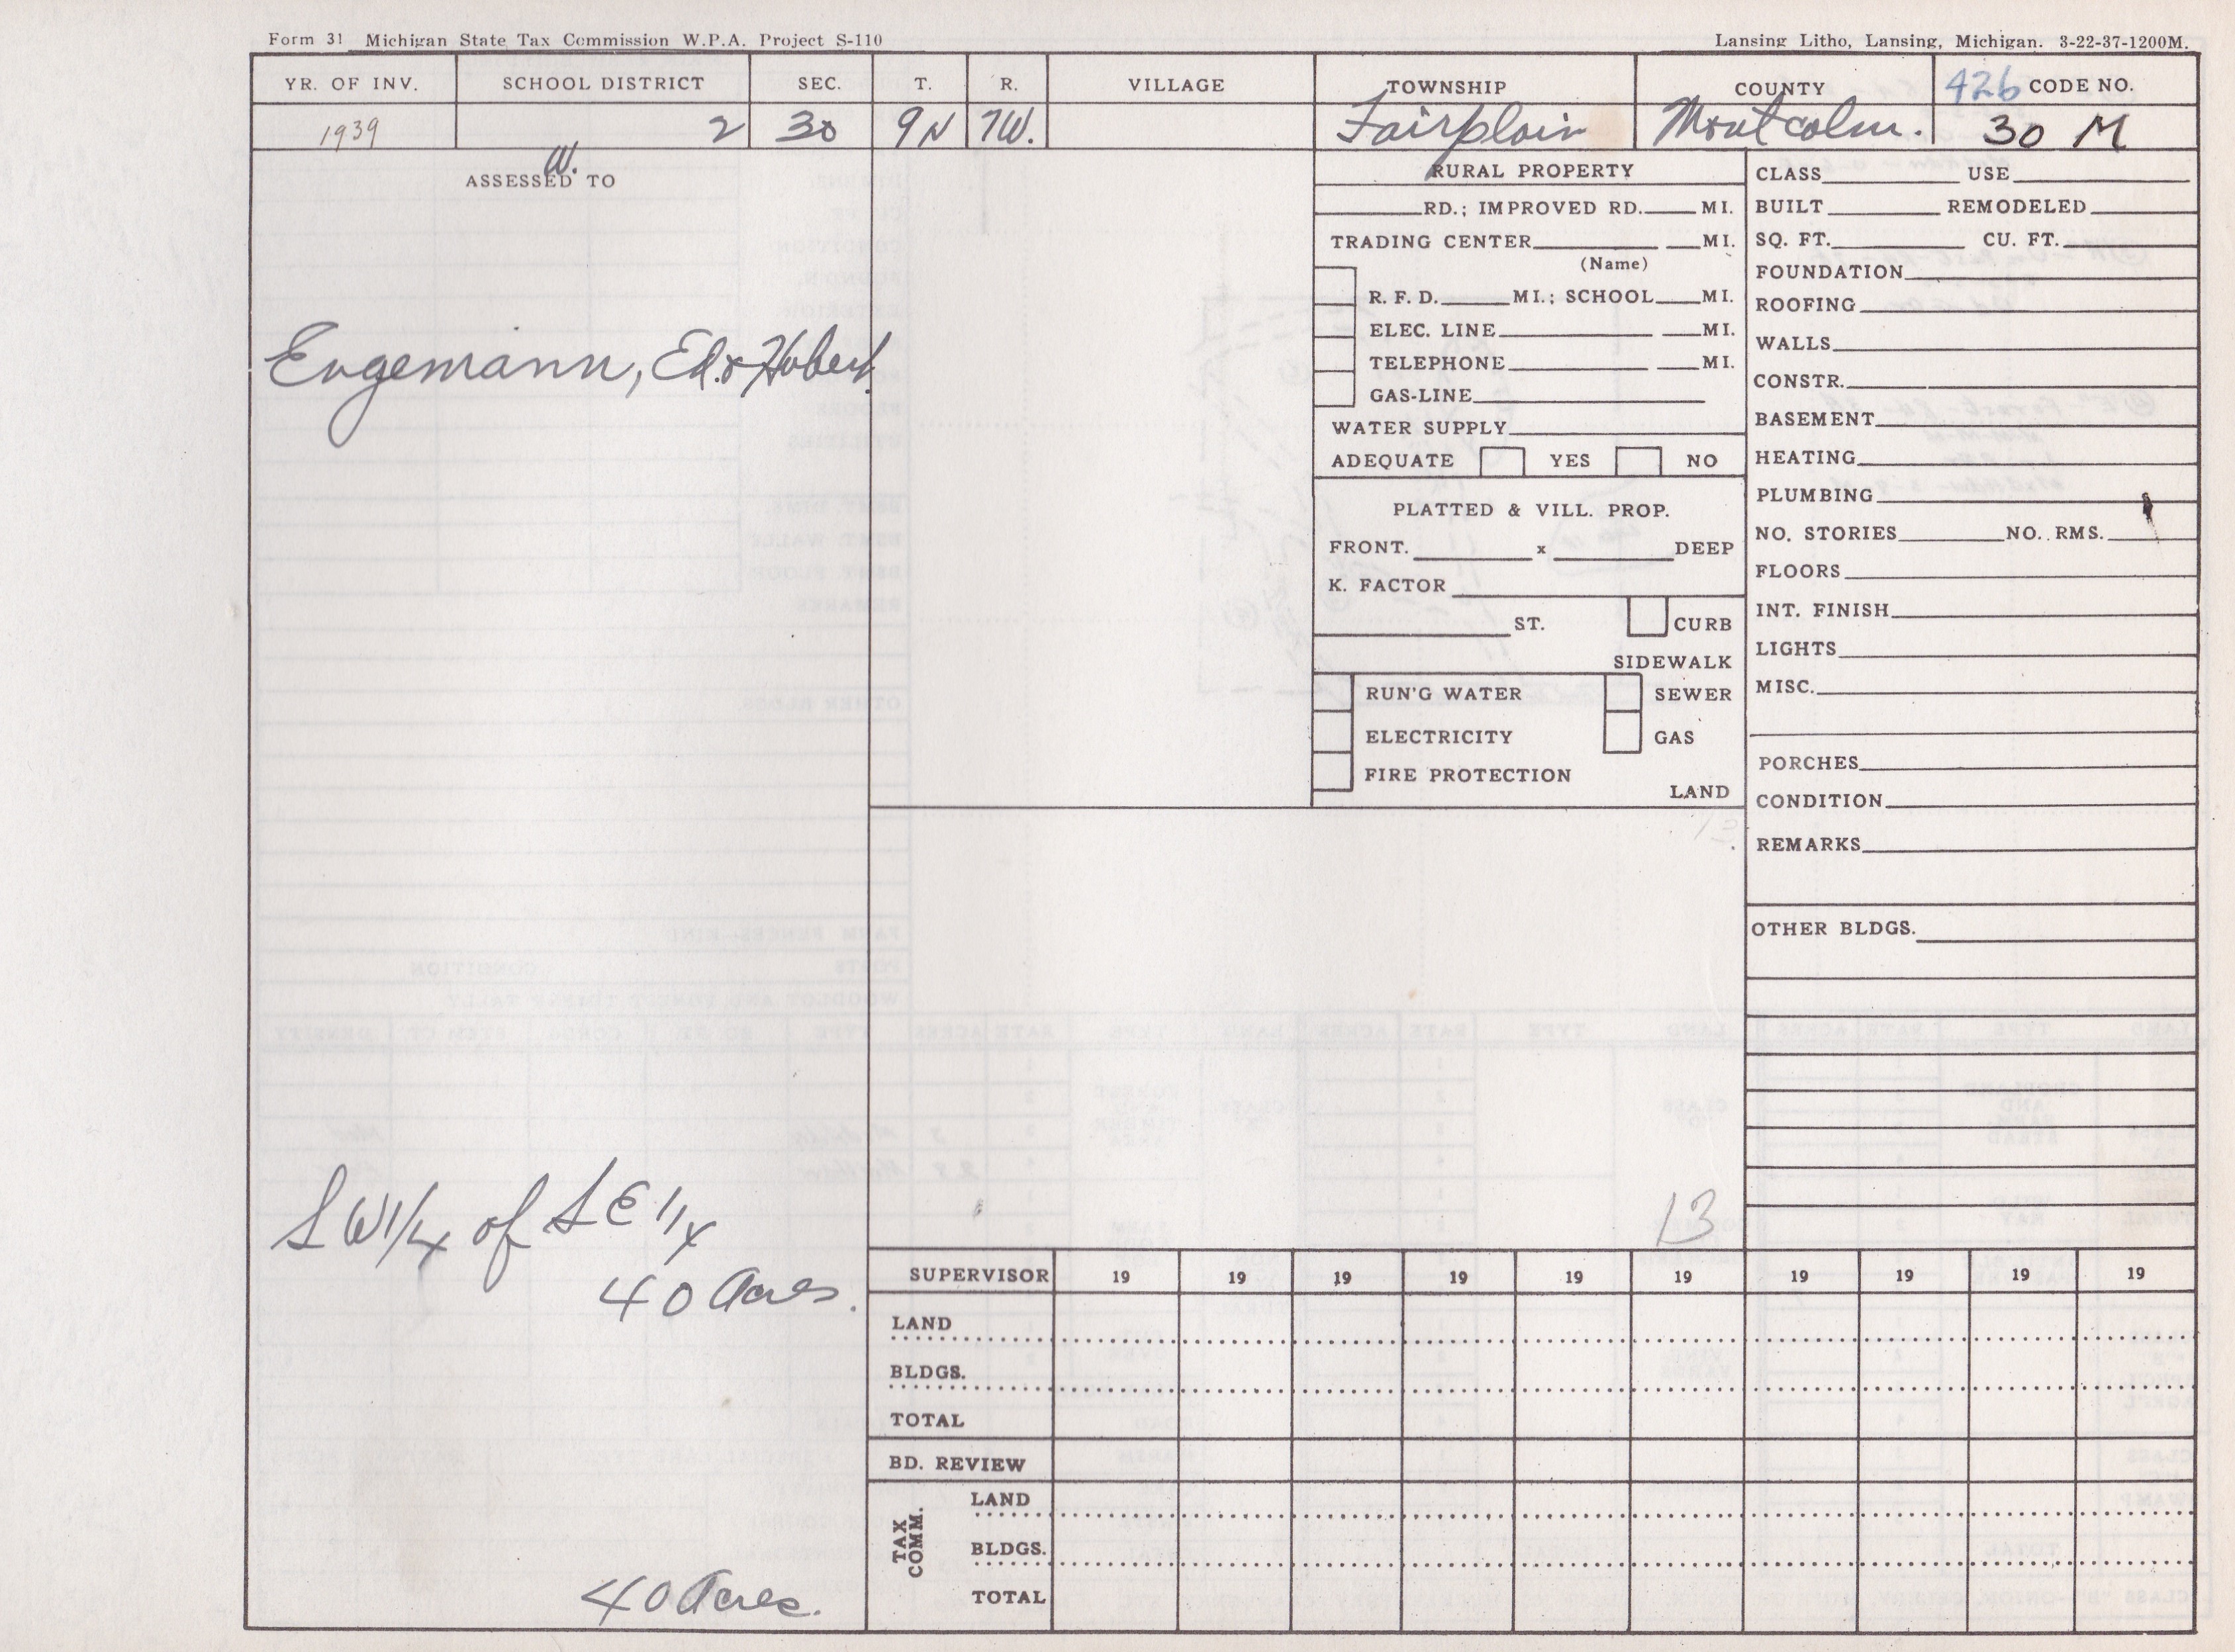 Form 31 Michigan State Tax Commission W.P.A. Project S-110
Lansing Litho, Lansing, Michigan. 3-22-37-1200M.
YR. OF INV. SCHOOL DISTRICT SEC. T. R. VILLAGE TOWNSHIP COUNTY 426 CODE NO.
1939 2 30 9N 7W. Fairplain Montcalm. 30 M
W.
ASSESSED TO
Engemann, Ed. & Hobert
SW1/4 of SE 1/4
40 Acres.
40 Acres.
RURAL PROPERTY
RD.; IMPROVED RD. MI.
TRADING CENTER MI.
(Name)
R. F. D. MI.; SCHOOL MI.
ELEC. LINE MI.
TELEPHONE MI.
GAS-LINE
WATER SUPPLY
ADEQUATE YES NO
PLATTED & VILL. PROP.
FRONT. x DEEP
K. FACTOR
ST. CURB
SIDEWALK
RUN'G WATER SEWER
ELECTRICITY GAS
FIRE PROTECTION
LAND
13
CLASS USE
BUILT REMODELED
SQ. FT. CU. FT.
FOUNDATION
ROOFING
WALLS
CONSTR.
BASEMENT
HEATING
PLUMBING
NO. STORIES NO. RMS.
FLOORS
INT. FINISH
LIGHTS
MISC.
PORCHES
CONDITION
REMARKS
OTHER BLDGS.
SUPERVISOR 19 19 19 19 19 19 19 19 19 19
LAND
BLDGS.
TOTAL
BD. REVIEW
TAX COMM.
LAND
BLDGS.
TOTAL